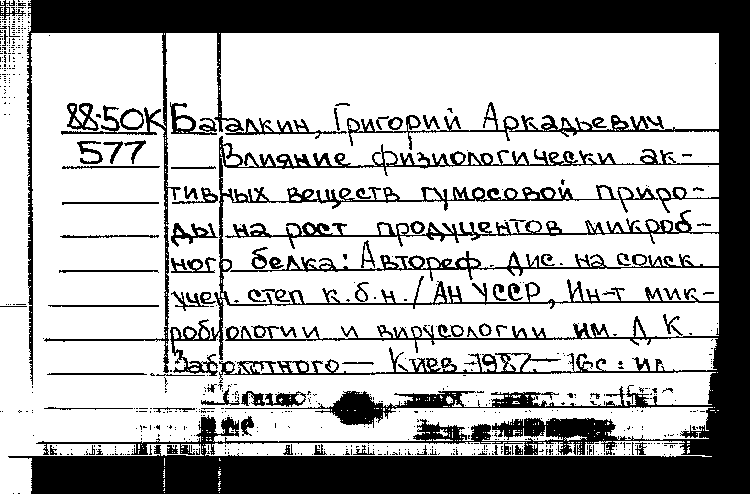 88:50К Баталкин, Григорий Аркадьевич.
577 Влияние физиологически ак-
тивных веществ гумосовой приро-
ды на рост продуцентов микроб-
ного белка: Автореф. дис. на соиск.
учен. степ к.б.н. / АН УССР, Ин-т мик-
робиологии и вирусологии им. Д. К.
Заболотного. — Киев, 1987. — 16с : ил